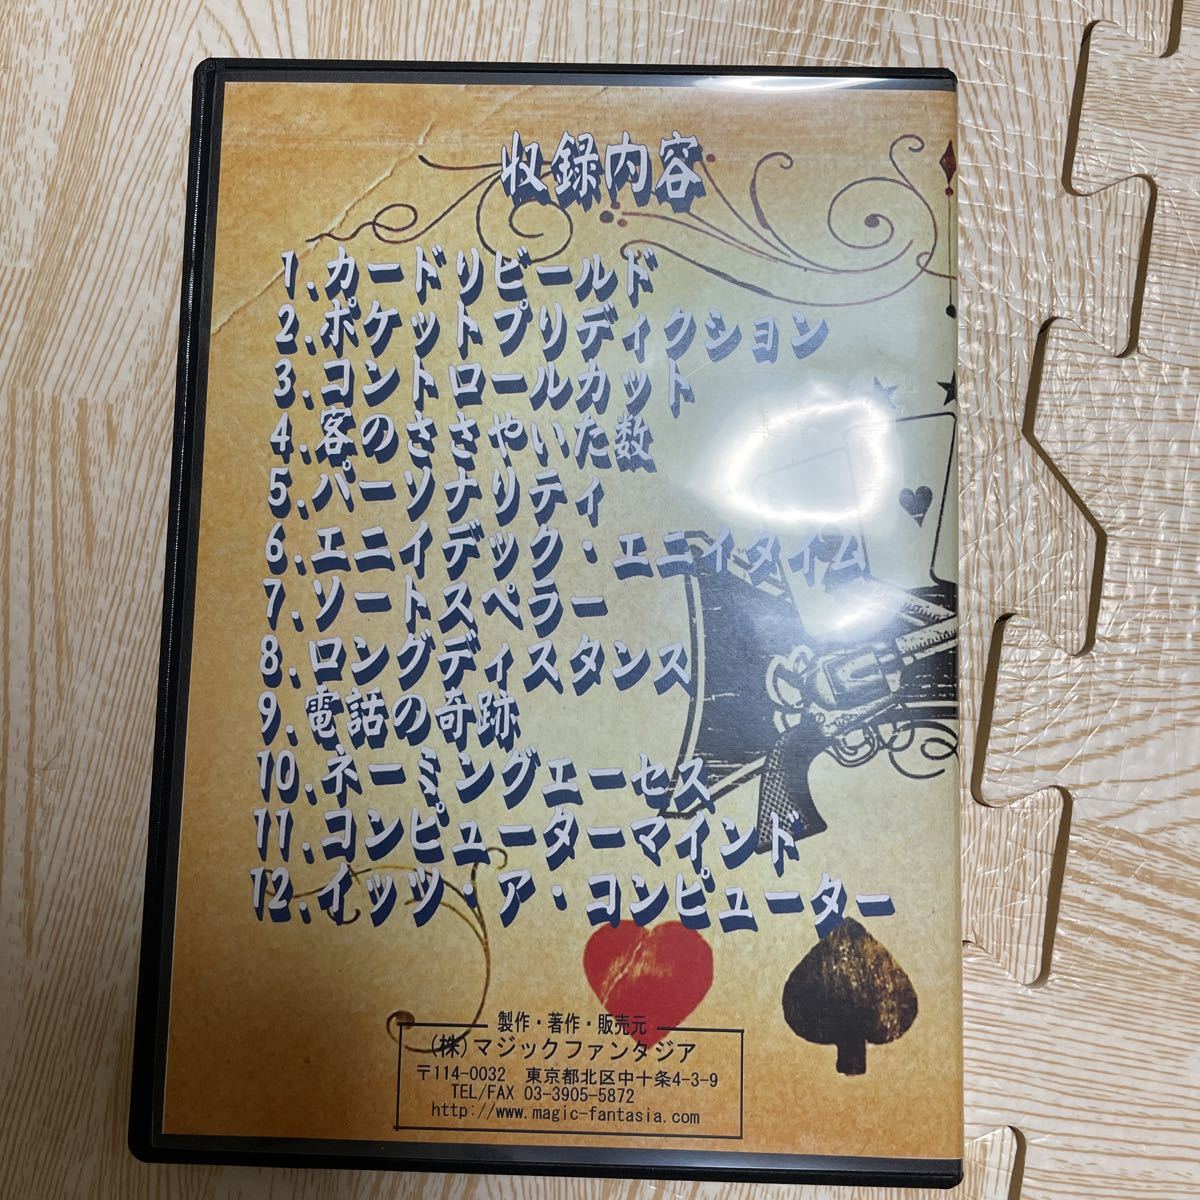 収録内容
1.カードリビールド
2.ポケットプリディクション
3.コントロールカット
4.客のささやいた数
5.パーソナリティ
6.エニイデック・エニイタイム
7.ソートスペラー
8.ロングディスタンス
9.電話の奇跡
10.ネーミングエーセス
11.コンピューターマインド
12.イッツ・ア・コンピューター
製作・著作・販売元
(株)マジックファンタジア
〒114-0032 東京都北区中十条4-3-9
TEL/FAX 03-3905-5872
http://www.magic-fantasia.com